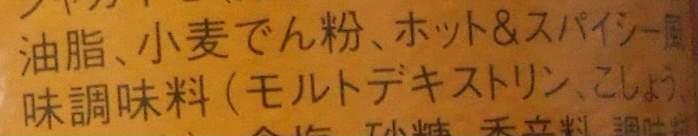 油脂、小麦でん粉、ホット&スパイシー風
味調味料(モルトデキストリン、こしょう、
食塩、砂糖、香辛料、調味料